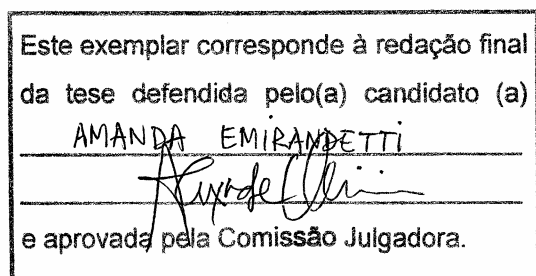 Este exemplar corresponde à redação final
da tese defendida pelo(a) candidato (a)
AMANDA EMIRANDETTI
e aprovada pela Comissão Julgadora.